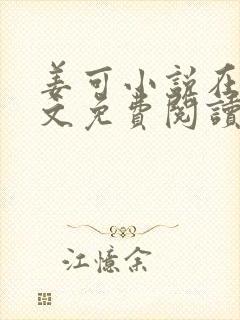 姜可小说在
文免費閱讀
江憶余